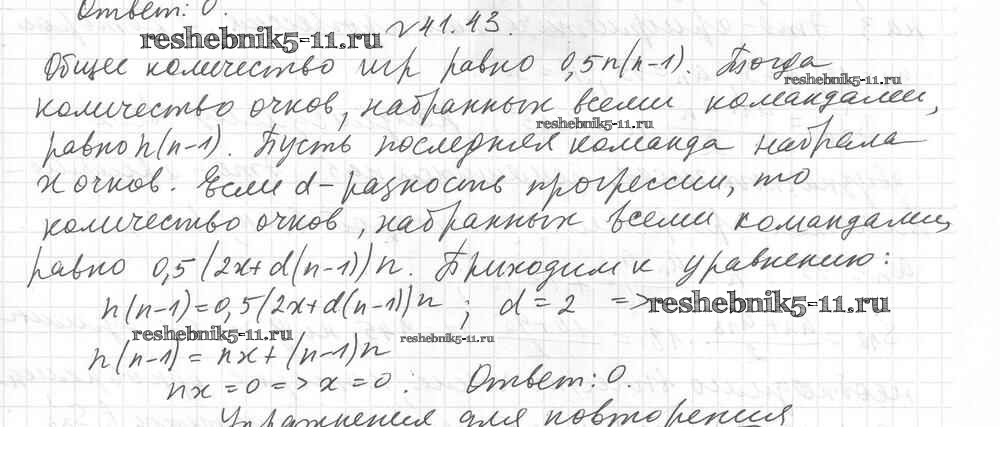 Ответ: 0.
reshebnik5-11.ru №41.43.
Общее количество игр равно 0,5n(n-1). Тогда
reshebnik5-11.ru
количество очков, набранных всеми командами,
reshebnik5-11.ru
равно n(n-1). Пусть последняя команда набрала
x очков. Если d - разность прогрессии, то
количество очков, набранных всеми командами,
равно 0,5(2x+d(n-1))n. Приходим к уравнению:
n(n-1)=0,5(2x+d(n-1))n ; d=2 => reshebnik5-11.ru
reshebnik5-11.ru reshebnik5-11.ru
n(n-1) = nx+(n-1)n
nx=0 => x=0. Ответ: 0.
Упражнения для повторения